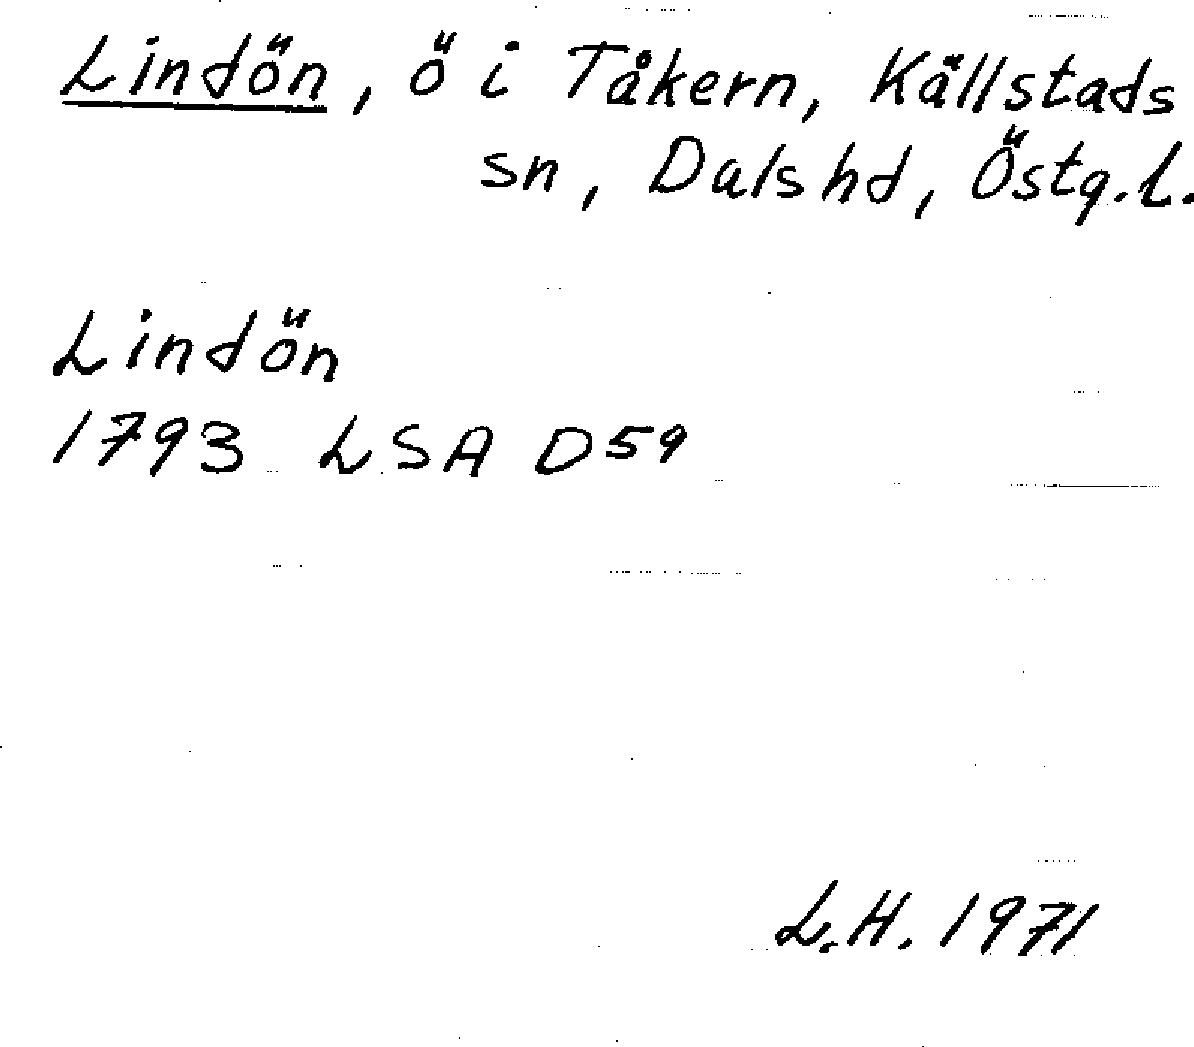 Lindön, ö i Tåkern, Källstads
sn, Dals hd, Östg.l.
Lindön
1793 LSA D59
L.H. 1971